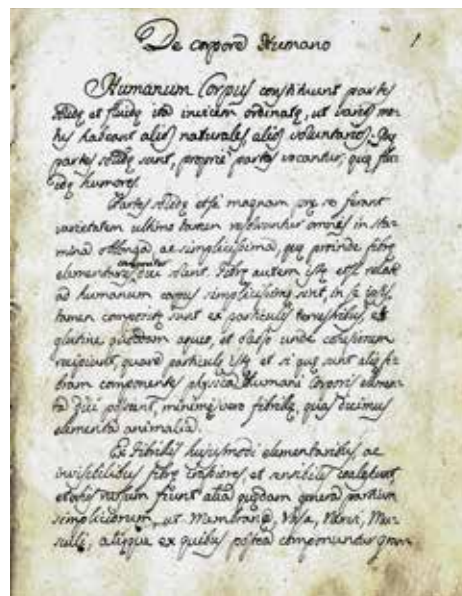 De corpore Humano 1
Humanum Corpus constituunt partes
solidę et fluidę ita invicem ordinatę, ut varios mo-
tus habeant alios naturales, alios voluntarios. Quę
partes solidę sunt, proprie partes vocantur; quę flu-
idę humores.
Partes solidę etsi magnam prę se ferant
varietatem ultimo tamen resolvuntur omnes in sta-
mina oblonga, ac simplicissima, quę proinde fibrę
elementares dici solent. Fibrę autem istę etsi relate
ad humanum corpus simplicissimę sint, in se ipsis
tamen compositę sunt ex particulis terrestribus, et
glutine quodam aqueo, et oleoso unde cohesionem
recipiunt, quare particulę istę et si quę sunt alię fi-
bram componentes physica Humani Corporis elemen-
ta dici possent, minime vero fibrillę, quas dicimus
elementa animalia.
Ex Fibrillis hujusmodi elementaribus, ac
invisibilibus fibrę crassiores, et sensibiles coalescunt,
et ex his rursum fiunt alia quędam genera partium
simpliciorum, ut Membranę, Vasa, Nervi, Mus-
culi, alięque ex quibus postea componuntur